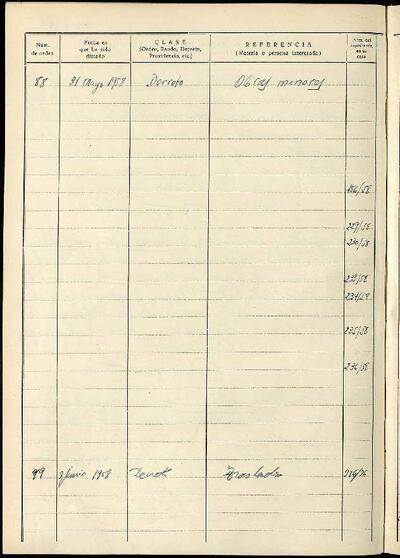 Núm. de orden
Fecha en que ha sido dictado
CLASE
(Orden, Bando, Decreto, Providencia, etc.)
REFERENCIA
(Materia o persona interesada)
Núm. del expediente, en su caso
88 31 Mayo 1958 Decreto Obras menores
229/58
230/58
233/58
234/58
235/58
236/58
1958